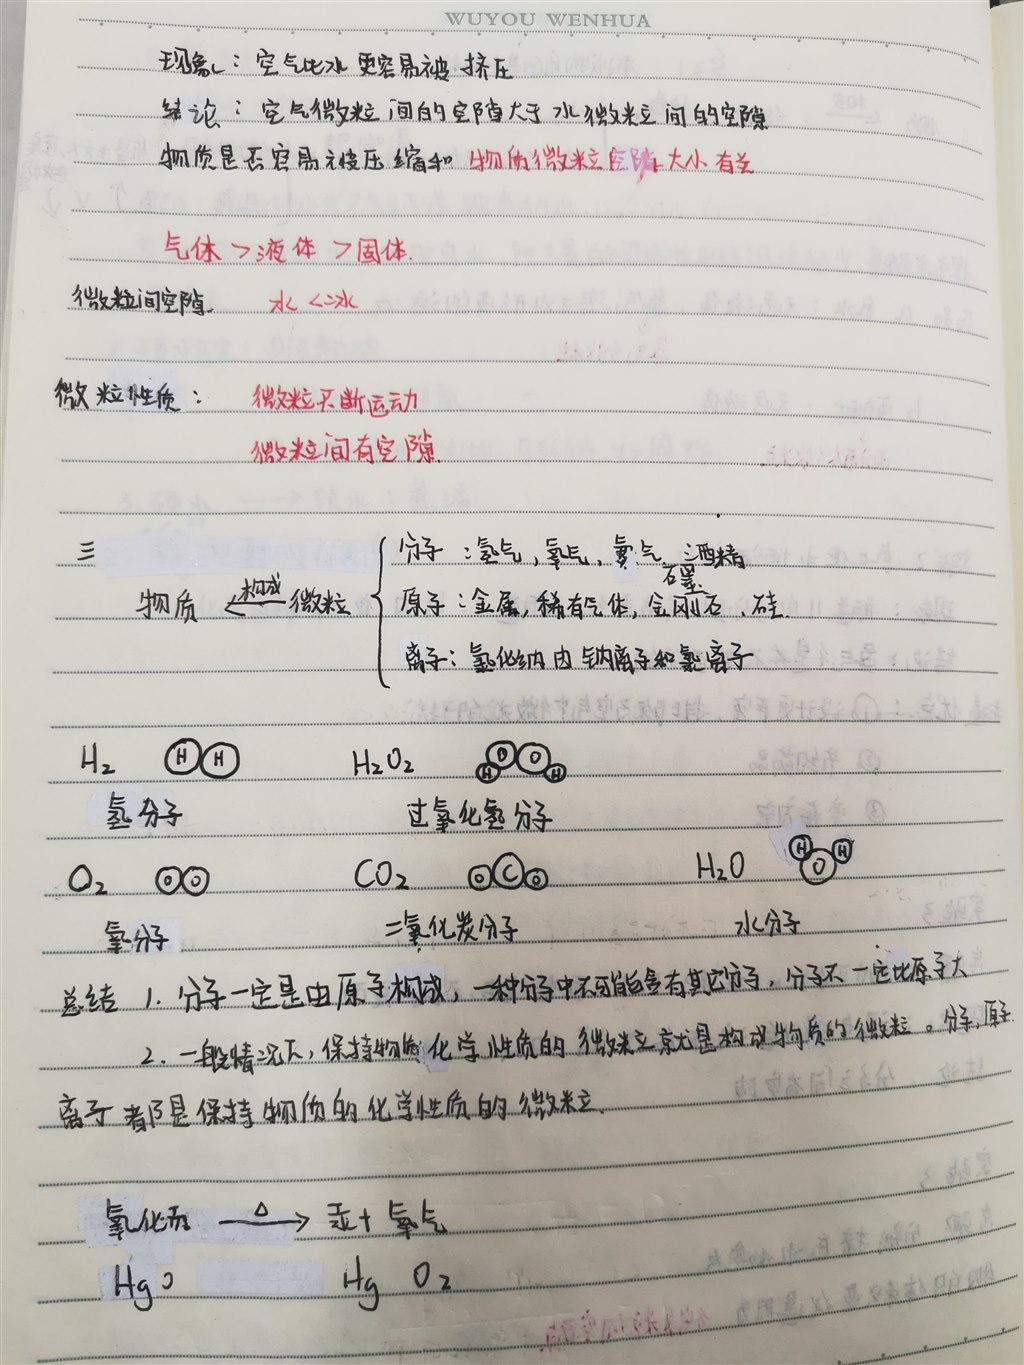 WUYOU WENHUA
现象：空气比水更容易被挤压
结论：空气微粒间的空隙大于水微粒间的空隙
物质是否容易被压缩和物质微粒空隙大小有关
气体>液体>固体.
微粒间空隙. 水<冰
微粒性质： 微粒不断运动
微粒间有空隙.
三
分子：氢气，氧气，氮气 酒精
石墨
物质 ← 构成 微粒
原子：金属，稀有气体，金刚石、硅.
离子：氯化钠由钠离子和氯离子
H₂ H H H₂O₂ H O O H
氢分子 过氧化氢分子
O₂ O O CO₂ O C O H₂O H O H
氧分子 二氧化炭分子 水分子
总结 1. 分子一定是由原子构成，一种分子中不可能含有其它分子，分子不一定比原子大
2. 一般情况下，保持物质化学性质的微粒就是构成物质的微粒。分子，原子
离子都是保持物质的化学性质的微粒.
氧化汞 —△→ 汞+氧气
HgO Hg O₂